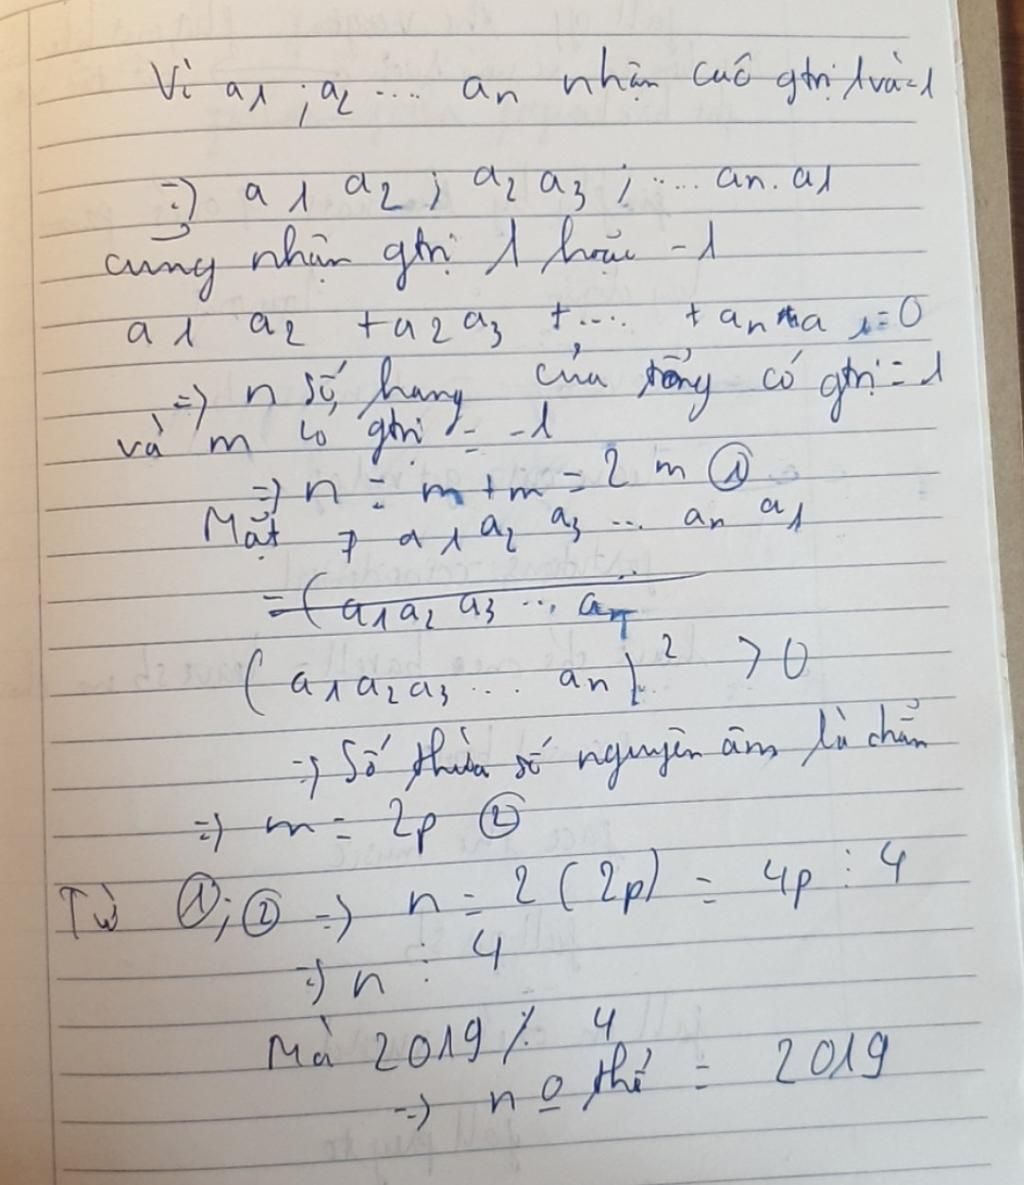 Vì a1 ; a2 .... an nhận các gtrị 1 và -1
=> a1 a2 ; a2 a3 ; .... an. a1
cũng nhận gtrị 1 hoặc -1
a1 a2 + a2 a3 + .... + an a1 = 0
=> n số hạng của tổng có gtrị = 1
và m có gtrị = -1
=> n = m + m = 2 m ①
Mặt ≠ a1 a2 a3 ... an a1
= ( a1 a2 a3 ... an
( a1 a2 a3 ... an )² > 0
=> Số thừa số nguyên âm là chẵn
=> m = 2p ②
Từ ① ; ② => n = 2 ( 2p ) = 4p ⋮ 4
=> n ⋮ 4
Mà 2019 ⋮̸ 4
=> n o thể = 2019